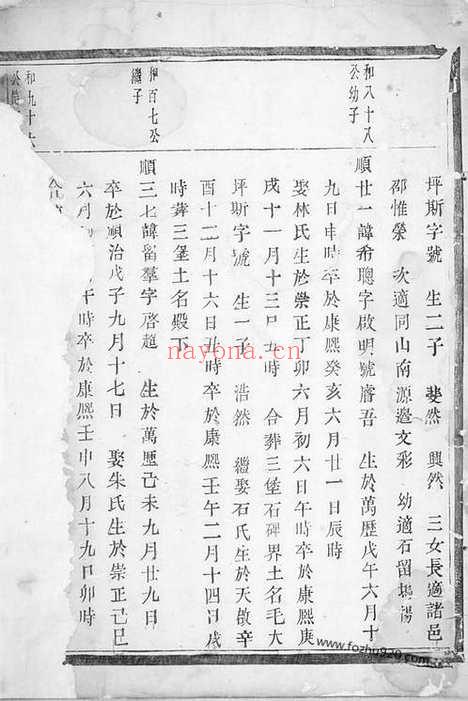 和八十八
公幼子
伸百七公
繼子
和九十六
坪斯字號 生二子 斐然 興然 三女長適諸邑
邵惟榮 次適同山南源邊文彩 幼適石留楊湯
順廿一諱希聰字啟明號睿吾 生於萬歷戊午六月十
九日申時卒於康熙癸亥六月廿一日辰時
娶林氏生於崇正丁卯六月初六日午時卒於康熙庚
戌十一月十三日丑時 合葬三堡石碑界土名毛大
坪斯字號 生一子 浩然 繼娶石氏生於天啟辛
酉十二月十六日丑時卒於康熙壬午二月十四日戌
時葬三堡土名殿下
順三七諱留羣字啓超 生於萬歷己未九月廿九日
卒於順治戊子九月十七日 娶朱氏生於崇正己巳
六月 午時卒於康熙壬申八月十九日卯時
合
nayona.cn
www.fozhu920.com